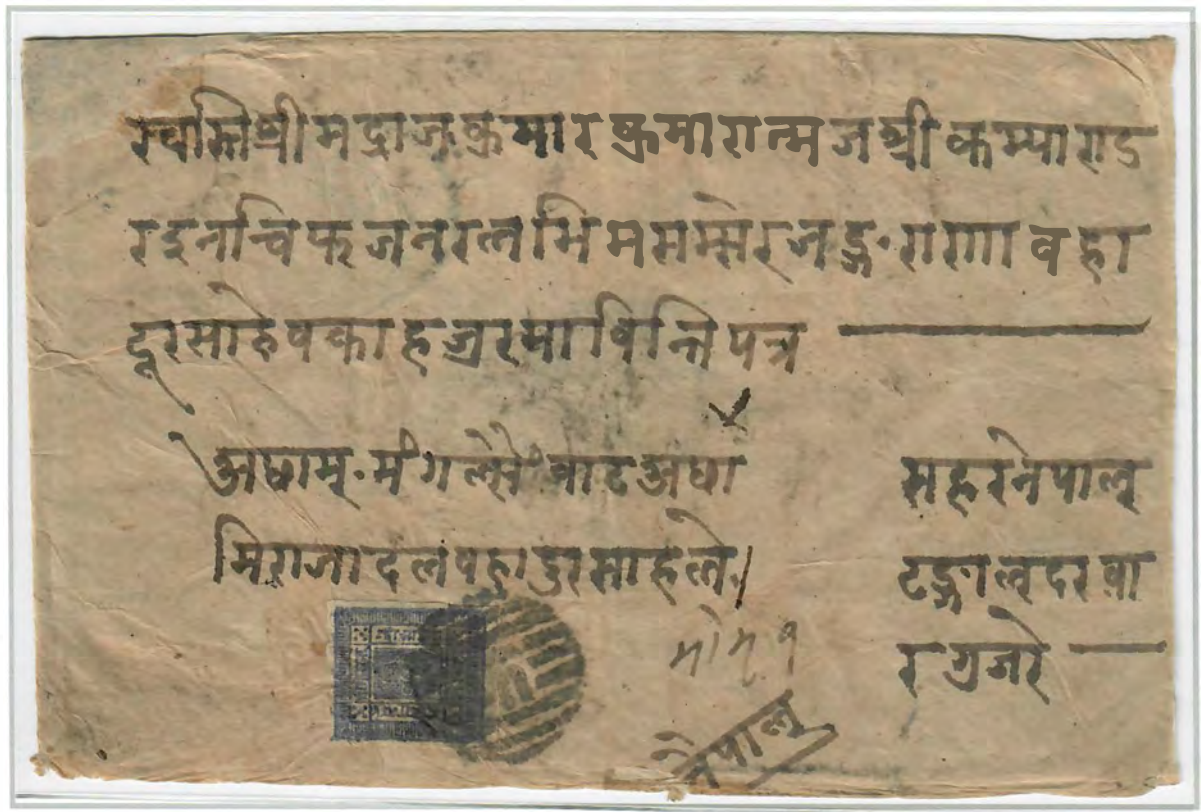 स्वस्तिश्रीमद्राजकुमारकुमारात्मजश्रीकम्याराड
रइनचिफजनरलभिमसम्सेरजङ्ग·राणावहा
दूरसाहेवकाहजुरमाविन्तिपत्र
अछाम्·मंगल्सैंवाटअछा
मिराजादलवहादुरसाहले।
सहरनेपाल्
टङ्गाल्दरवा
रगुजरे
नेपाल्